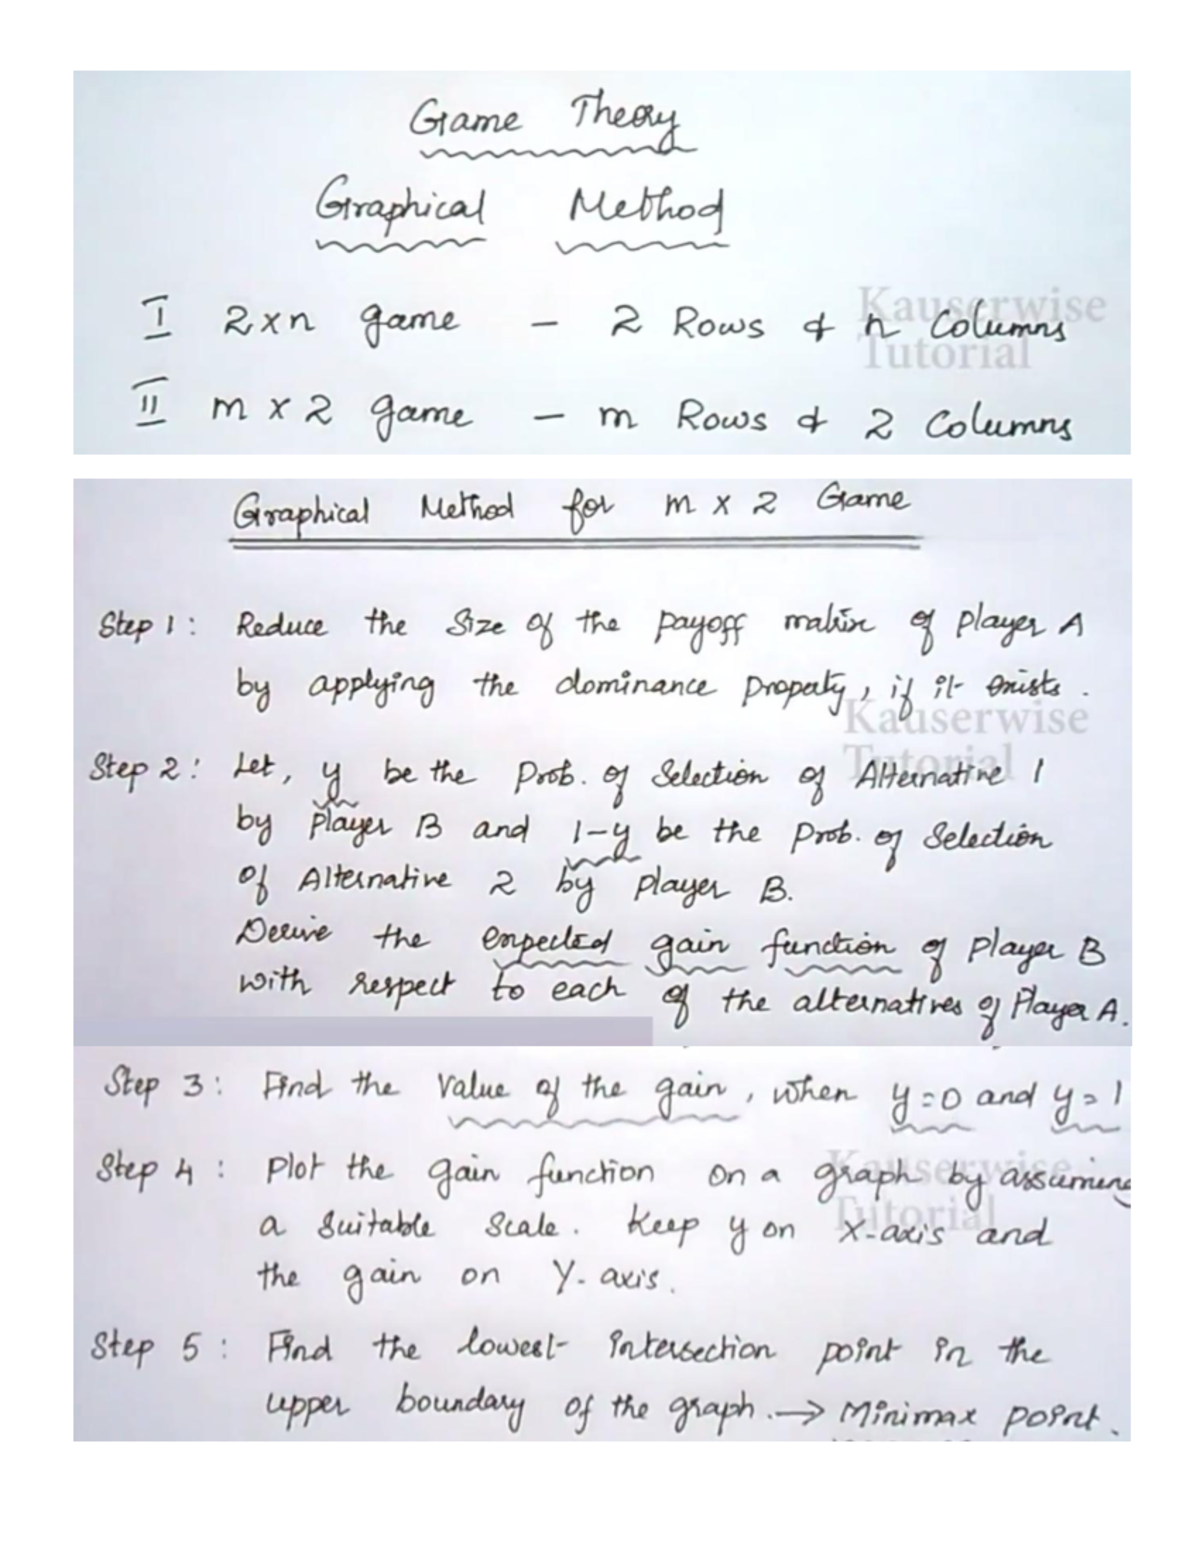 Game Theory
Graphical Method
I 2xn game - 2 Rows & n Columns
II m x 2 game - m Rows & 2 Columns
Kauserwise
Tutorial
Graphical Method for m x 2 Game
Step 1: Reduce the Size of the payoff matrix of player A
by applying the dominance property, if it exists.
Kauserwise
Tutorial
Step 2: Let, y be the Prob. of Selection of Alternative 1
by Player B and 1-y be the Prob. of Selection
of Alternative 2 by player B.
Derive the expected gain function of player B
with respect to each of the alternatives of Player A.
Step 3: Find the value of the gain, when y=0 and y=1
Step 4: Plot the gain function on a graph by assuming
a suitable scale. Keep y on X-axis and
the gain on Y-axis.
Kauserwise
Tutorial
Step 5: Find the lowest intersection point in the
upper boundary of the graph. → Minimax point.